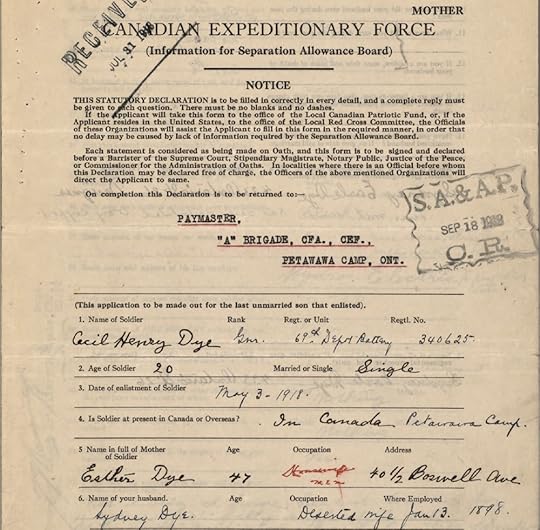 MOTHER
RECEIVED
JUL 31 1918
CANADIAN EXPEDITIONARY FORCE
(Information for Separation Allowance Board)
NOTICE
THIS STATUTORY DECLARATION is to be filled in correctly in every detail, and a complete reply must
be given to each question. There must be no blanks and no dashes.
If the Applicant will take this form to the office of the Local Canadian Patriotic Fund, or, if the
Applicant resides in the United States, to the office of the Local Red Cross Committee, the Officials
of these Organizations will assist the Applicant to fill in this form in the required manner, in order that
no delay may be caused by lack of information required by the Separation Allowance Board.
Each statement is considered as being made on Oath, and this form is to be signed and declared
before a Barrister of the Supreme Court, Stipendiary Magistrate, Notary Public, Justice of the Peace,
or Commissioner for the Administration of Oaths. In localities where there is an Official before whom
this Declaration may be declared free of charge, the Officers of the above mentioned Organizations will
direct the Applicant to same.
On completion this Declaration is to be returned to:—
S.A.&A.P.
SEP 18 1918
C.R.
PAYMASTER,
"A" BRIGADE, CFA., CEF.,
PETAWAWA CAMP, ONT.
(This application to be made out for the last unmarried son that enlisted).
1. Name of Soldier Rank Regt. or Unit Regtl. No.
Cecil Henry Dye Gnr. 69th Depot Battery 340625.
2. Age of Soldier 20 Married or Single Single
3. Date of enlistment of Soldier May 3 - 1918.
4. Is Soldier at present in Canada or Overseas? In Canada Petawawa Camp.
5 Name in full of Mother of Soldier Age Occupation Address
Esther Dye 47 Housewife 40 1/2 Boswell Ave
6. Name of your husband. Age Occupation Where Employed
Sydney Dye. Deserted wife Jan 13. 1898.